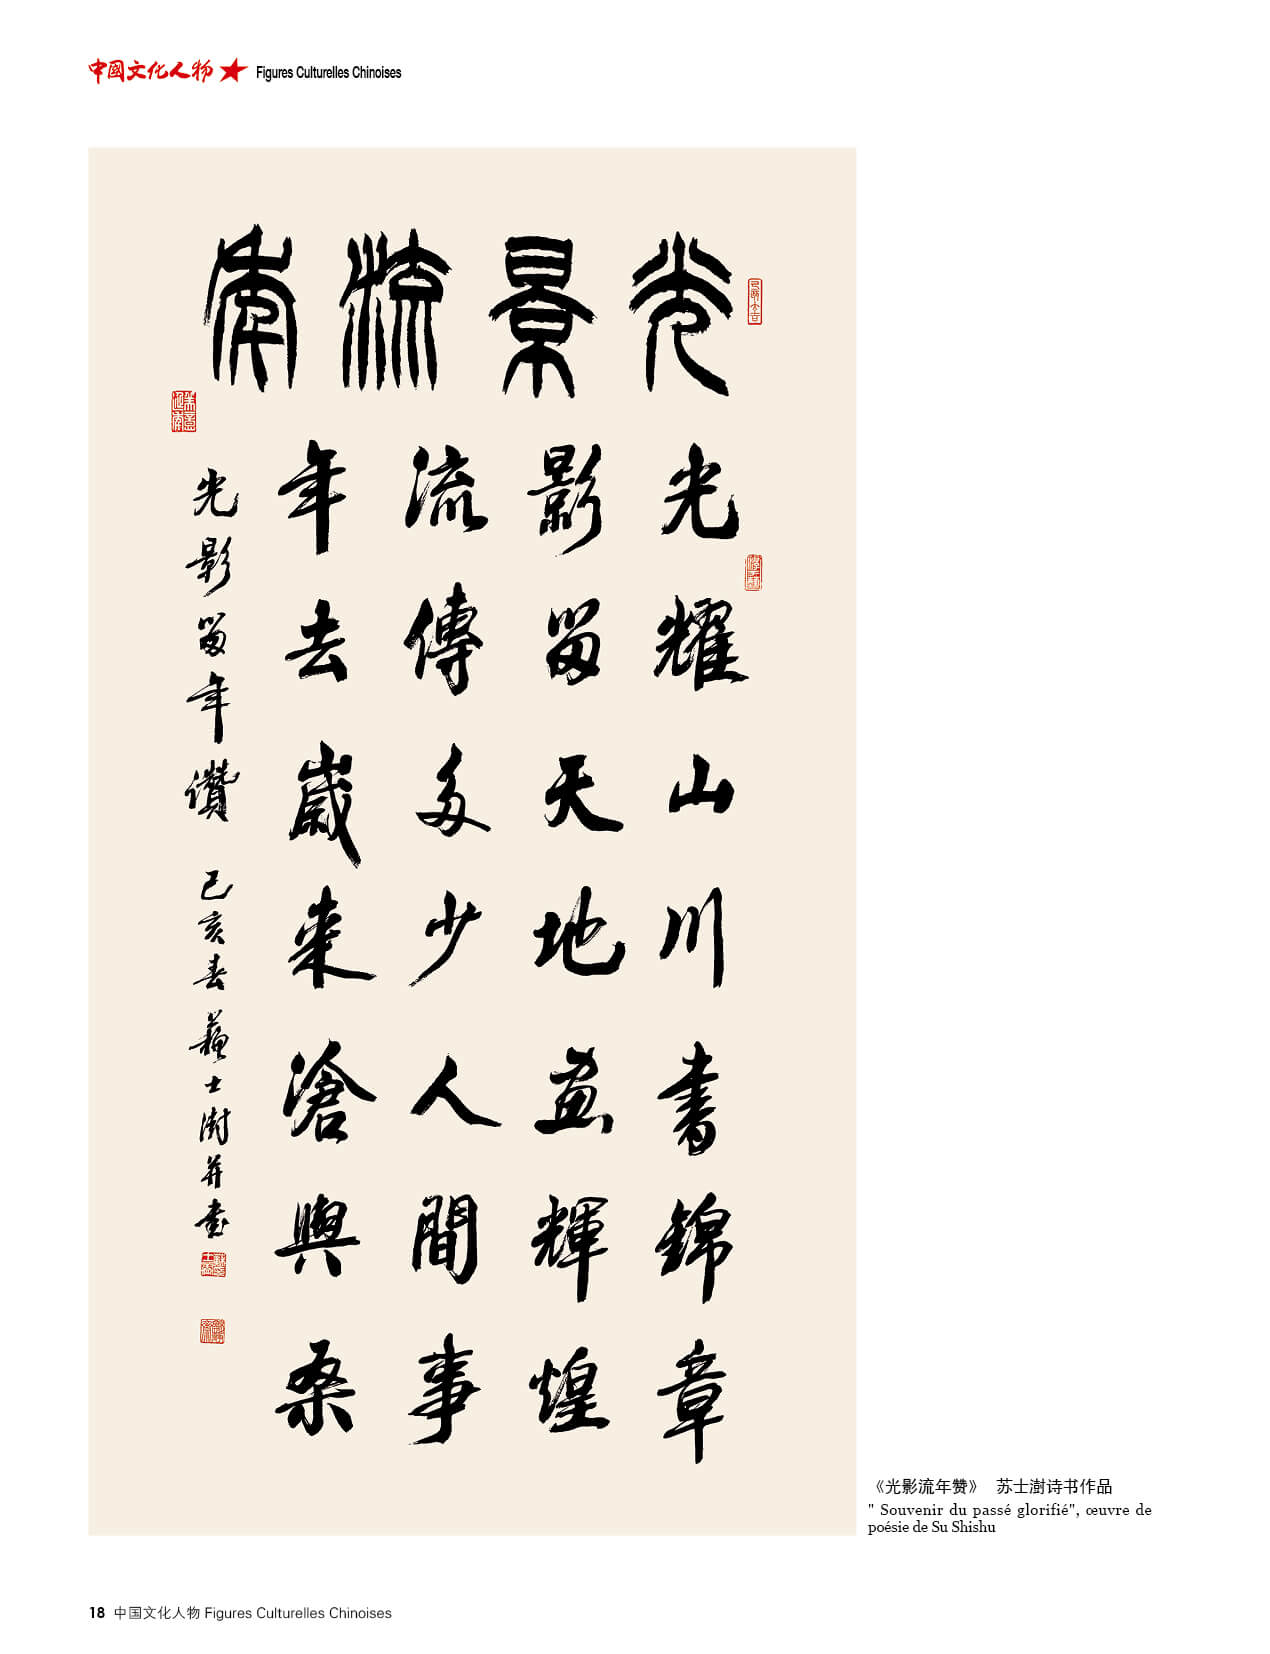 中國文化人物 Figures Culturelles Chinoises
光景流年
光耀山川書錦章
影留天地畫輝煌
流傳多少人間事
年去歲来滄與桑
光影留年讚 己亥春 蘇士澍并書
《光影流年赞》 苏士澍诗书作品
" Souvenir du passé glorifié", œuvre de
poésie de Su Shishu
18 中国文化人物 Figures Culturelles Chinoises